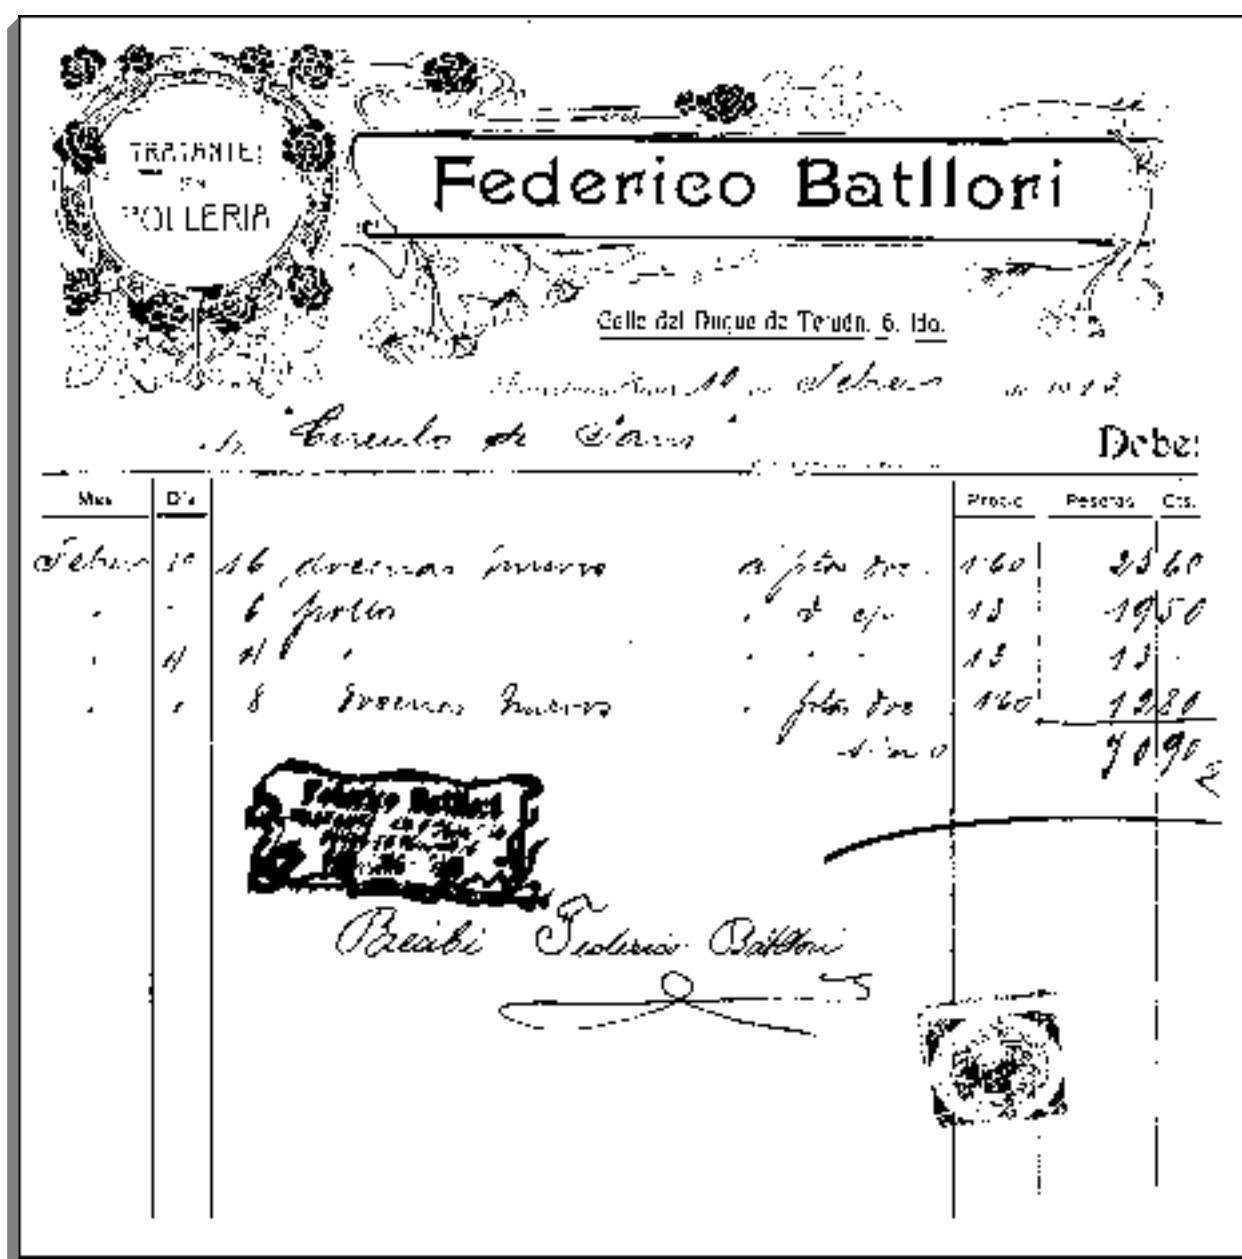 TRATANTE
EN
POLLERIA
Federico Batllori
Calle del Duque de Tetuán, 6, Ida.
10 de Febro de 1912
"Circulo de Paris"
Debe:
Mes Día Precio Pesetas Cts.
Febro 10 16 docenas huevos a ptas doc. 1'60 25 60
" " 6 pollos 13 19 50
" 11 4 " " " " 13 13 -
" " 8 docenas huevos " ptas doc 1'60 12 80
70 90
Federico Batllori
Recibí Federico Batllori